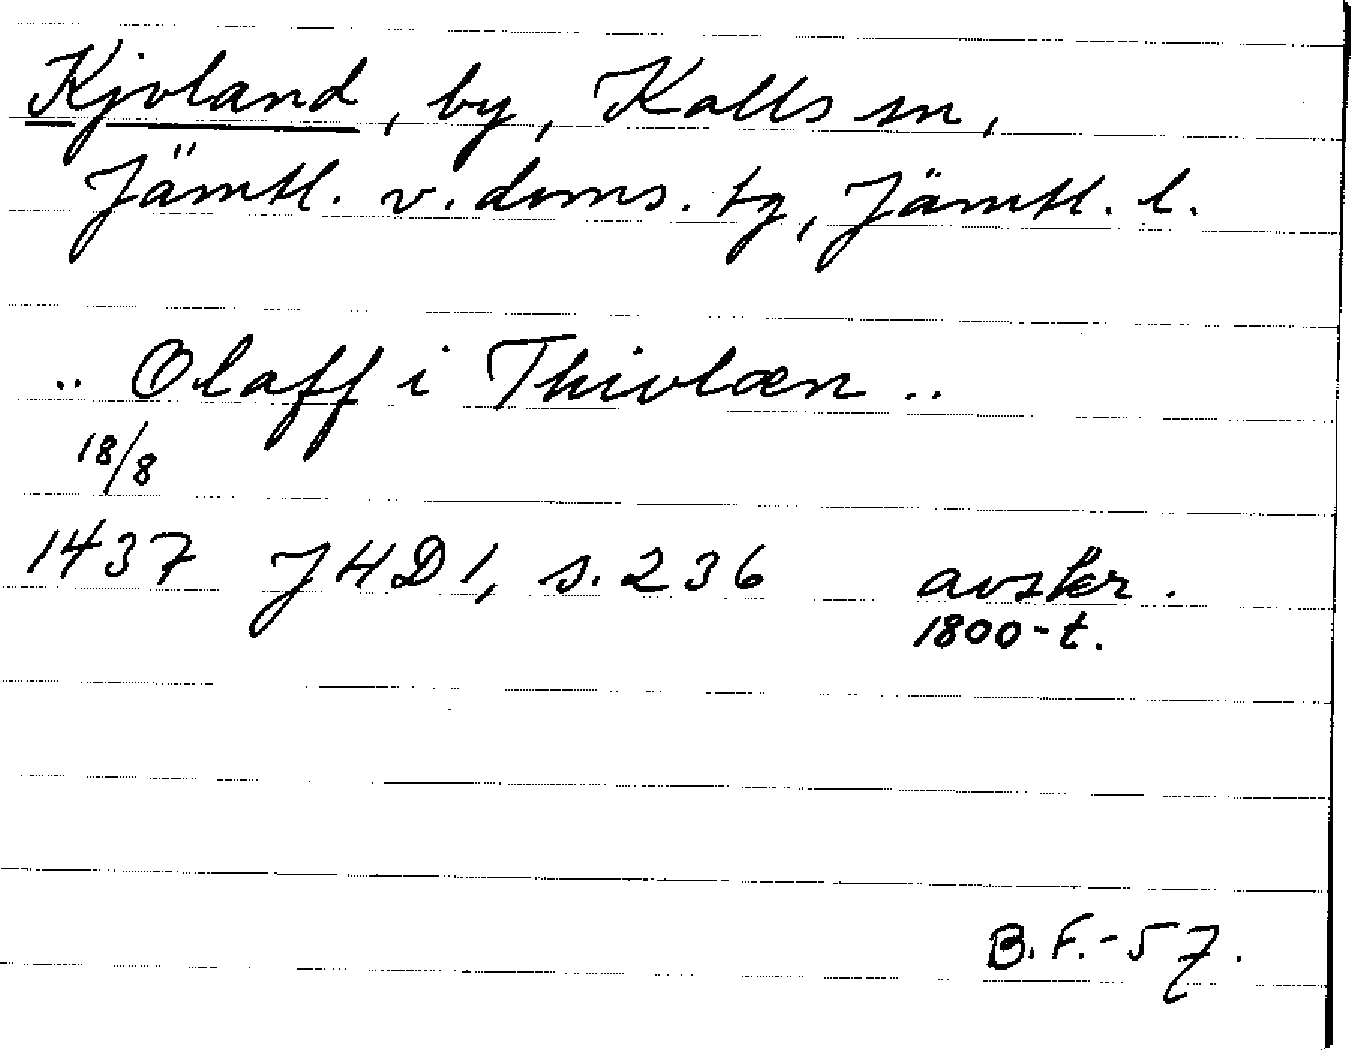 Kjoland, by, Kalls sn,
Jämtl. v. doms. tg, Jämtl. l.
.. Olaff i Thiolæn ..
18/8
1437 JHD 1, s. 236 avskr.
1800-t.
B.F.-57.